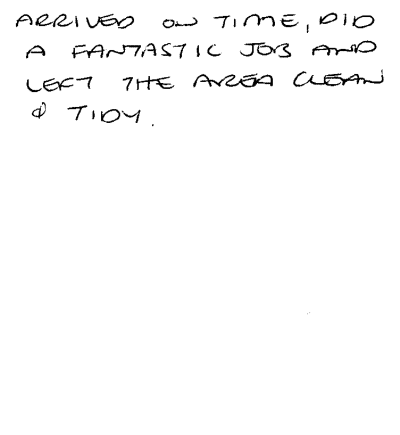 ARRIVED ON TIME, DID
A FANTASTIC JOB AND
LEFT THE AREA CLEAN
& TIDY.